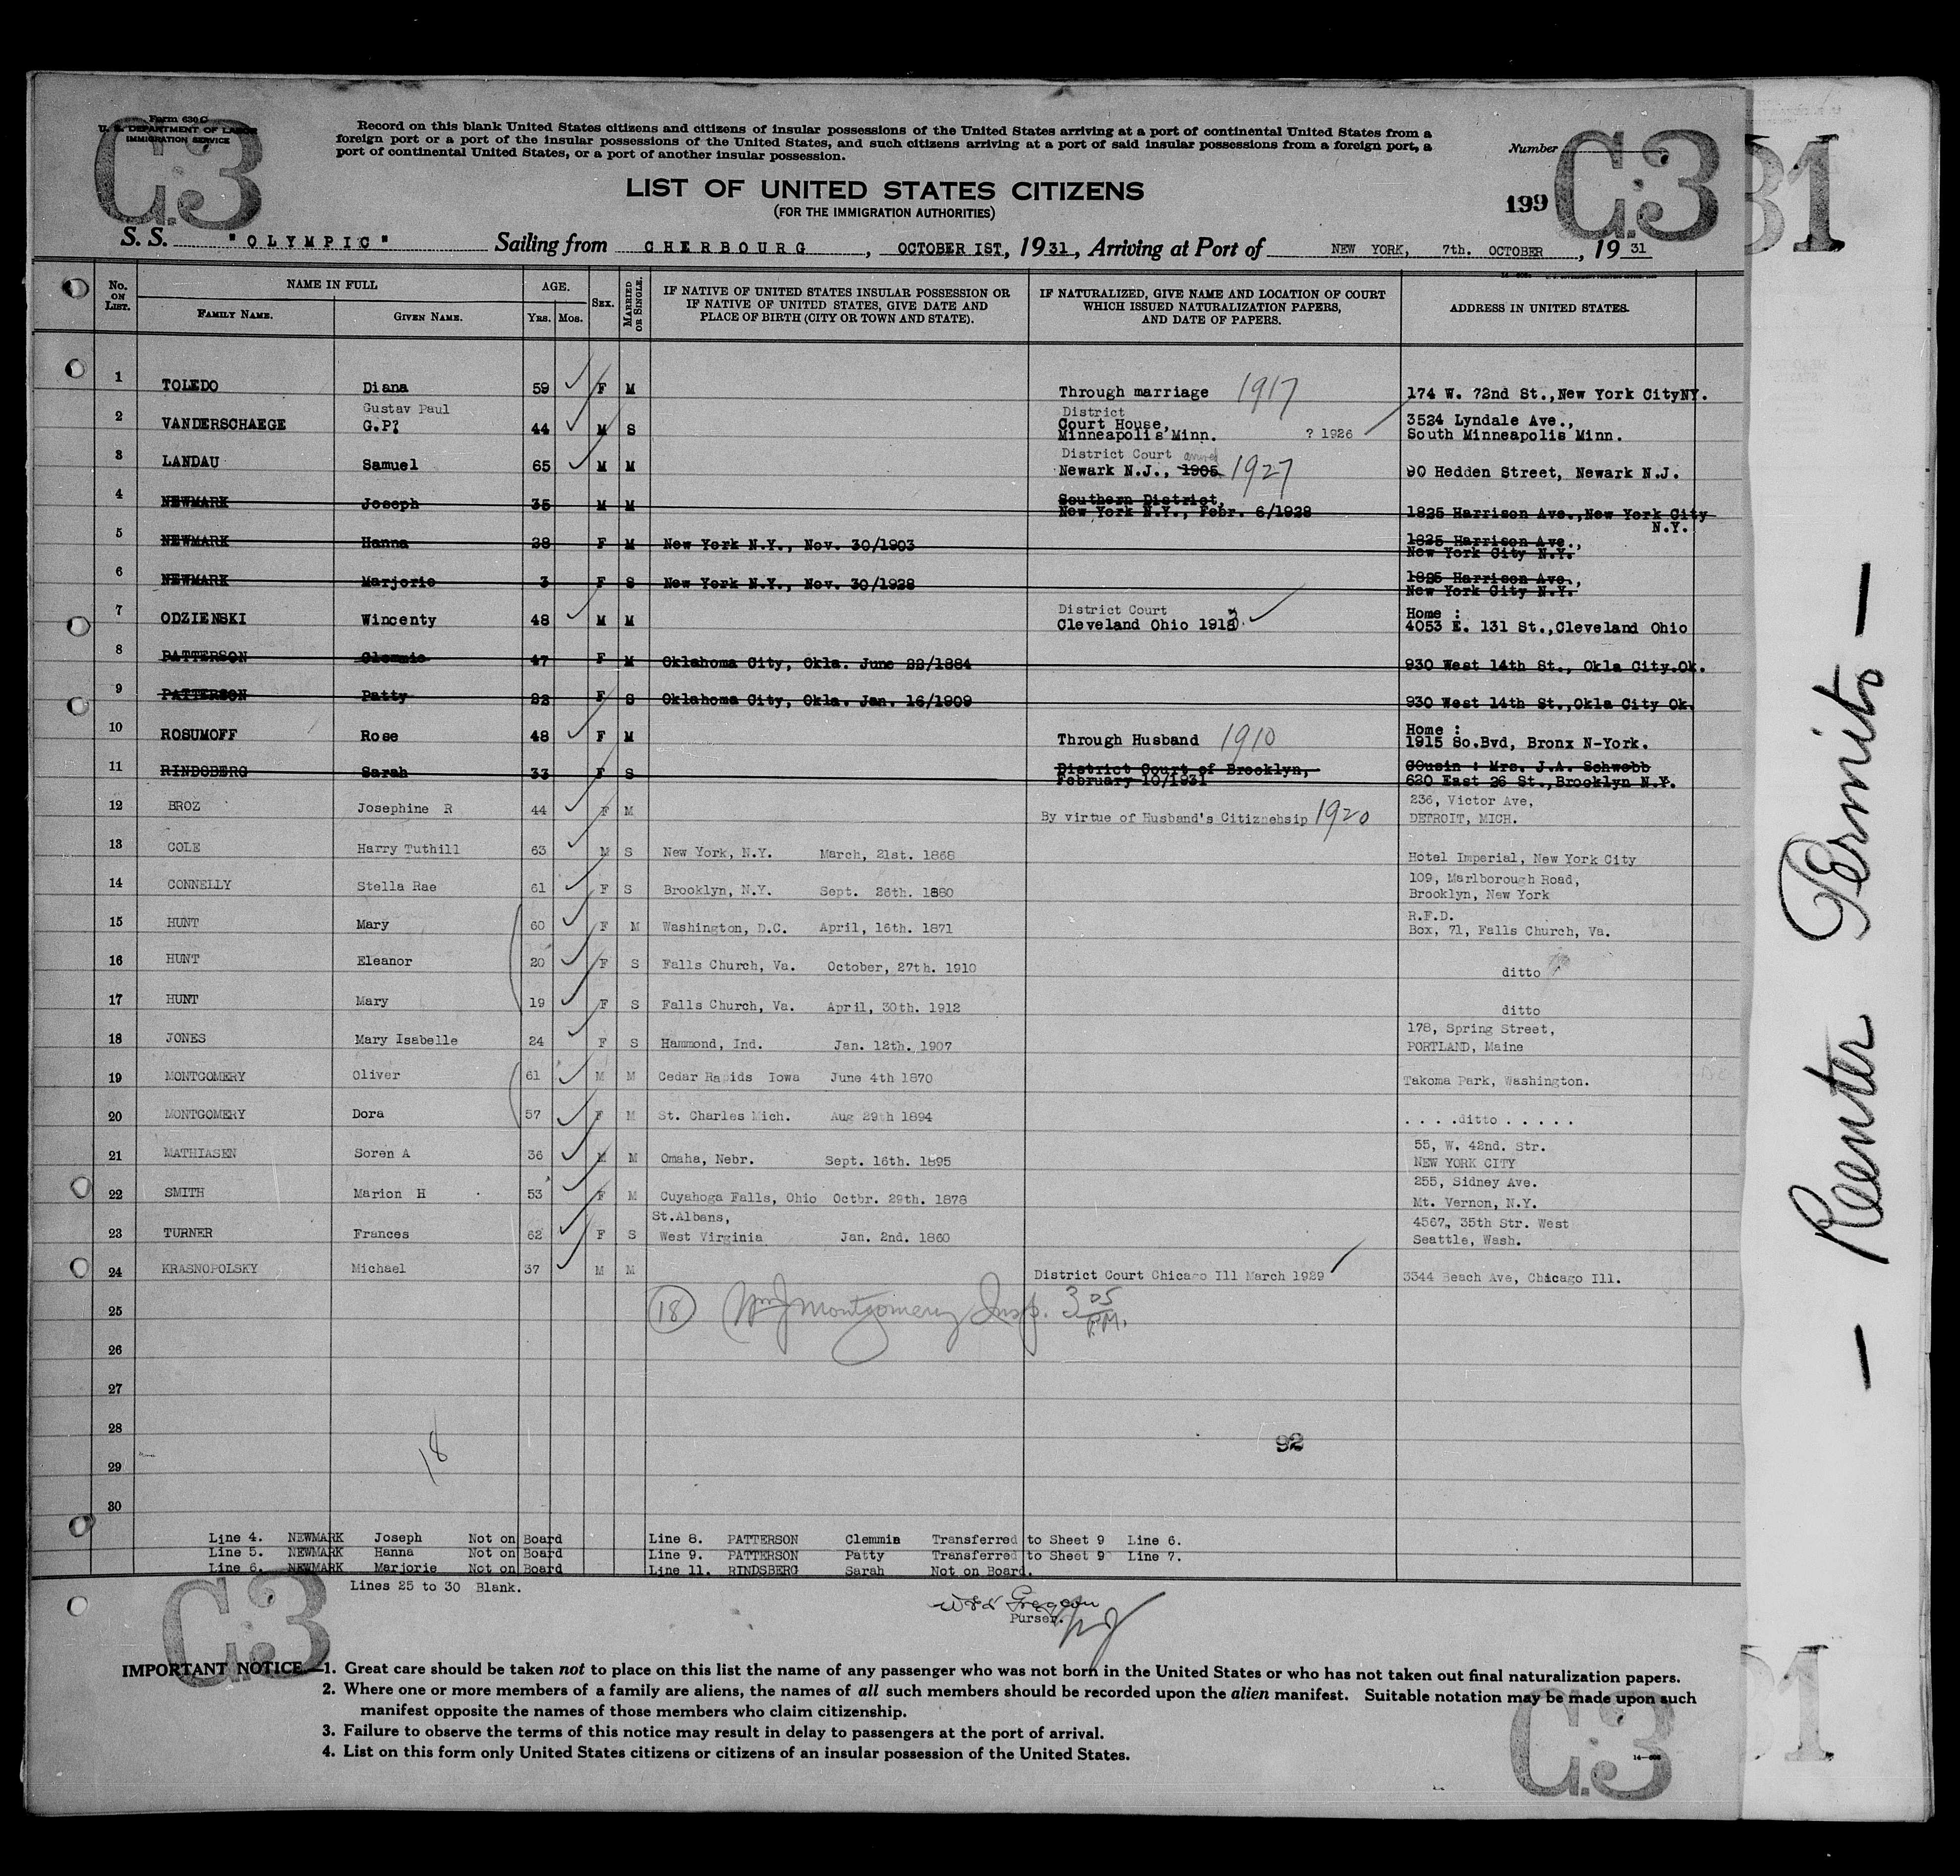 Form 630 C
U. S. DEPARTMENT OF LABOR
IMMIGRATION SERVICE
C.3
Record on this blank United States citizens and citizens of insular possessions of the United States arriving at a port of continental United States from a
foreign port or a port of the insular possessions of the United States, and such citizens arriving at a port of said insular possessions from a foreign port, a
port of continental United States, or a port of another insular possession.
Number
C.3
31
LIST OF UNITED STATES CITIZENS
(FOR THE IMMIGRATION AUTHORITIES)
199
S. S. "OLYMPIC" Sailing from CHERBOURG, OCTOBER 1ST, 1931, Arriving at Port of NEW YORK, 7th. OCTOBER, 19 31
No. ON LIST. NAME IN FULL AGE. SEX. MARRIED OR SINGLE. IF NATIVE OF UNITED STATES INSULAR POSSESSION OR IF NATIVE OF UNITED STATES, GIVE DATE AND PLACE OF BIRTH (CITY OR TOWN AND STATE). IF NATURALIZED, GIVE NAME AND LOCATION OF COURT WHICH ISSUED NATURALIZATION PAPERS, AND DATE OF PAPERS. ADDRESS IN UNITED STATES.
FAMILY NAME. GIVEN NAME. YRS. MOS.
1 TOLEDO Diana 59 F M Through marriage 1917 174 W. 72nd St.,New York CityNY.
Gustav Paul District
2 VANDERSCHAEGE G.P? 44 M S Court House, Minneapolis Minn. ? 1926 3524 Lyndale Ave., South Minneapolis Minn.
3 LANDAU Samuel 65 M M District Court Newark N.J., 1905 1927 90 Hedden Street, Newark N.J.
4 NEWMARK Joseph 35 M M Southern District, New York N.Y., Febr. 6/1928 1825 Harrison Ave.,New York City N.Y.
5 NEWMARK Hanna 28 F M New York N.Y., Nov. 30/1903 1825 Harrison Ave., New York City N.Y.
6 NEWMARK Marjorie 3 F S New York N.Y., Nov. 30/1928 1825 Harrison Ave., New York City N.Y.
7 ODZIENSKI Wincenty 48 M M District Court Cleveland Ohio Home : 4053 E. 131 St.,Cleveland Ohio
8 PATTERSON Clemmie 47 F M Oklahoma City, Okla. June 22/1884 930 West 14th St., Okla City.Ok.
9 PATTERSON Patty 22 F S Oklahoma City, Okla. Jan. 16/1909 930 West 14th St.,Okla City Ok.
10 ROSUMOFF Rose 48 F M Through Husband 1910 Home : 1915 So.Bvd, Bronx N-York.
11 RINDSBERG Sarah 33 F S District Court of Brooklyn, February 10/1931 Cousin : Mrs. J.A. Schwobb 620 East 26 St.,Brooklyn N.Y.
12 BROZ Josephine R 44 F M By virtue of Husband's Citiznehsip 1920 236, Victor Ave, DETROIT, MICH.
13 COLE Harry Tuthill 63 M S New York, N.Y. March, 21st. 1868 Hotel Imperial, New York City
14 CONNELLY Stella Rae 61 F S Brooklyn, N.Y. Sept. 26th. 1880 109, Marlborough Road, Brooklyn, New York
15 HUNT Mary 60 F M Washington, D.C. April, 16th. 1871 R.F.D. Box, 71, Falls Church, Va.
16 HUNT Eleanor 20 F S Falls Church, Va. October, 27th. 1910 ditto
17 HUNT Mary 19 F S Falls Church, Va. April, 30th. 1912 ditto
18 JONES Mary Isabelle 24 F S Hammond, Ind. Jan. 12th. 1907 178, Spring Street, PORTLAND, Maine
19 MONTGOMERY Oliver 61 M M Cedar Rapids Iowa June 4th 1870 Takoma Park, Washington.
20 MONTGOMERY Dora 57 F M St. Charles Mich. Aug 29th 1894 . . . .ditto . . . . .
21 MATHIASEN Soren A 36 M M Omaha, Nebr. Sept. 16th. 1895 55, W. 42nd. Str. NEW YORK CITY
22 SMITH Marion H 53 F M Cuyahoga Falls, Ohio Octbr. 29th. 1878 255, Sidney Ave. Mt. Vernon, N.Y.
23 TURNER Frances 62 F S St.Albans, West Virginia Jan. 2nd. 1860 4567, 35th Str. West Seattle, Wash.
24 KRASNOPOLSKY Michael 37 M M District Court Chicago Ill March 1929 3344 Beach Ave, Chicago Ill.
25 18 Wm J Montgomery Insp. 3 05 P.M.
26
27
28 18 92
29
30
Line 4. NEWMARK Joseph Not on Board Line 8. PATTERSON Clemmie Transferred to Sheet 9 Line 6.
Line 5. NEWMARK Hanna Not on Board Line 9. PATTERSON Patty Transferred to Sheet 9 Line 7.
Line 6. NEWMARK Marjorie Not on Board Line 11. RINDSBERG Sarah Not on Board.
Lines 25 to 30 Blank.
Purser.
C.3
IMPORTANT NOTICE.—1. Great care should be taken not to place on this list the name of any passenger who was not born in the United States or who has not taken out final naturalization papers.
2. Where one or more members of a family are aliens, the names of all such members should be recorded upon the alien manifest. Suitable notation may be made upon such
manifest opposite the names of those members who claim citizenship.
3. Failure to observe the terms of this notice may result in delay to passengers at the port of arrival.
4. List on this form only United States citizens or citizens of an insular possession of the United States.
C.3
— Reenter Permits —